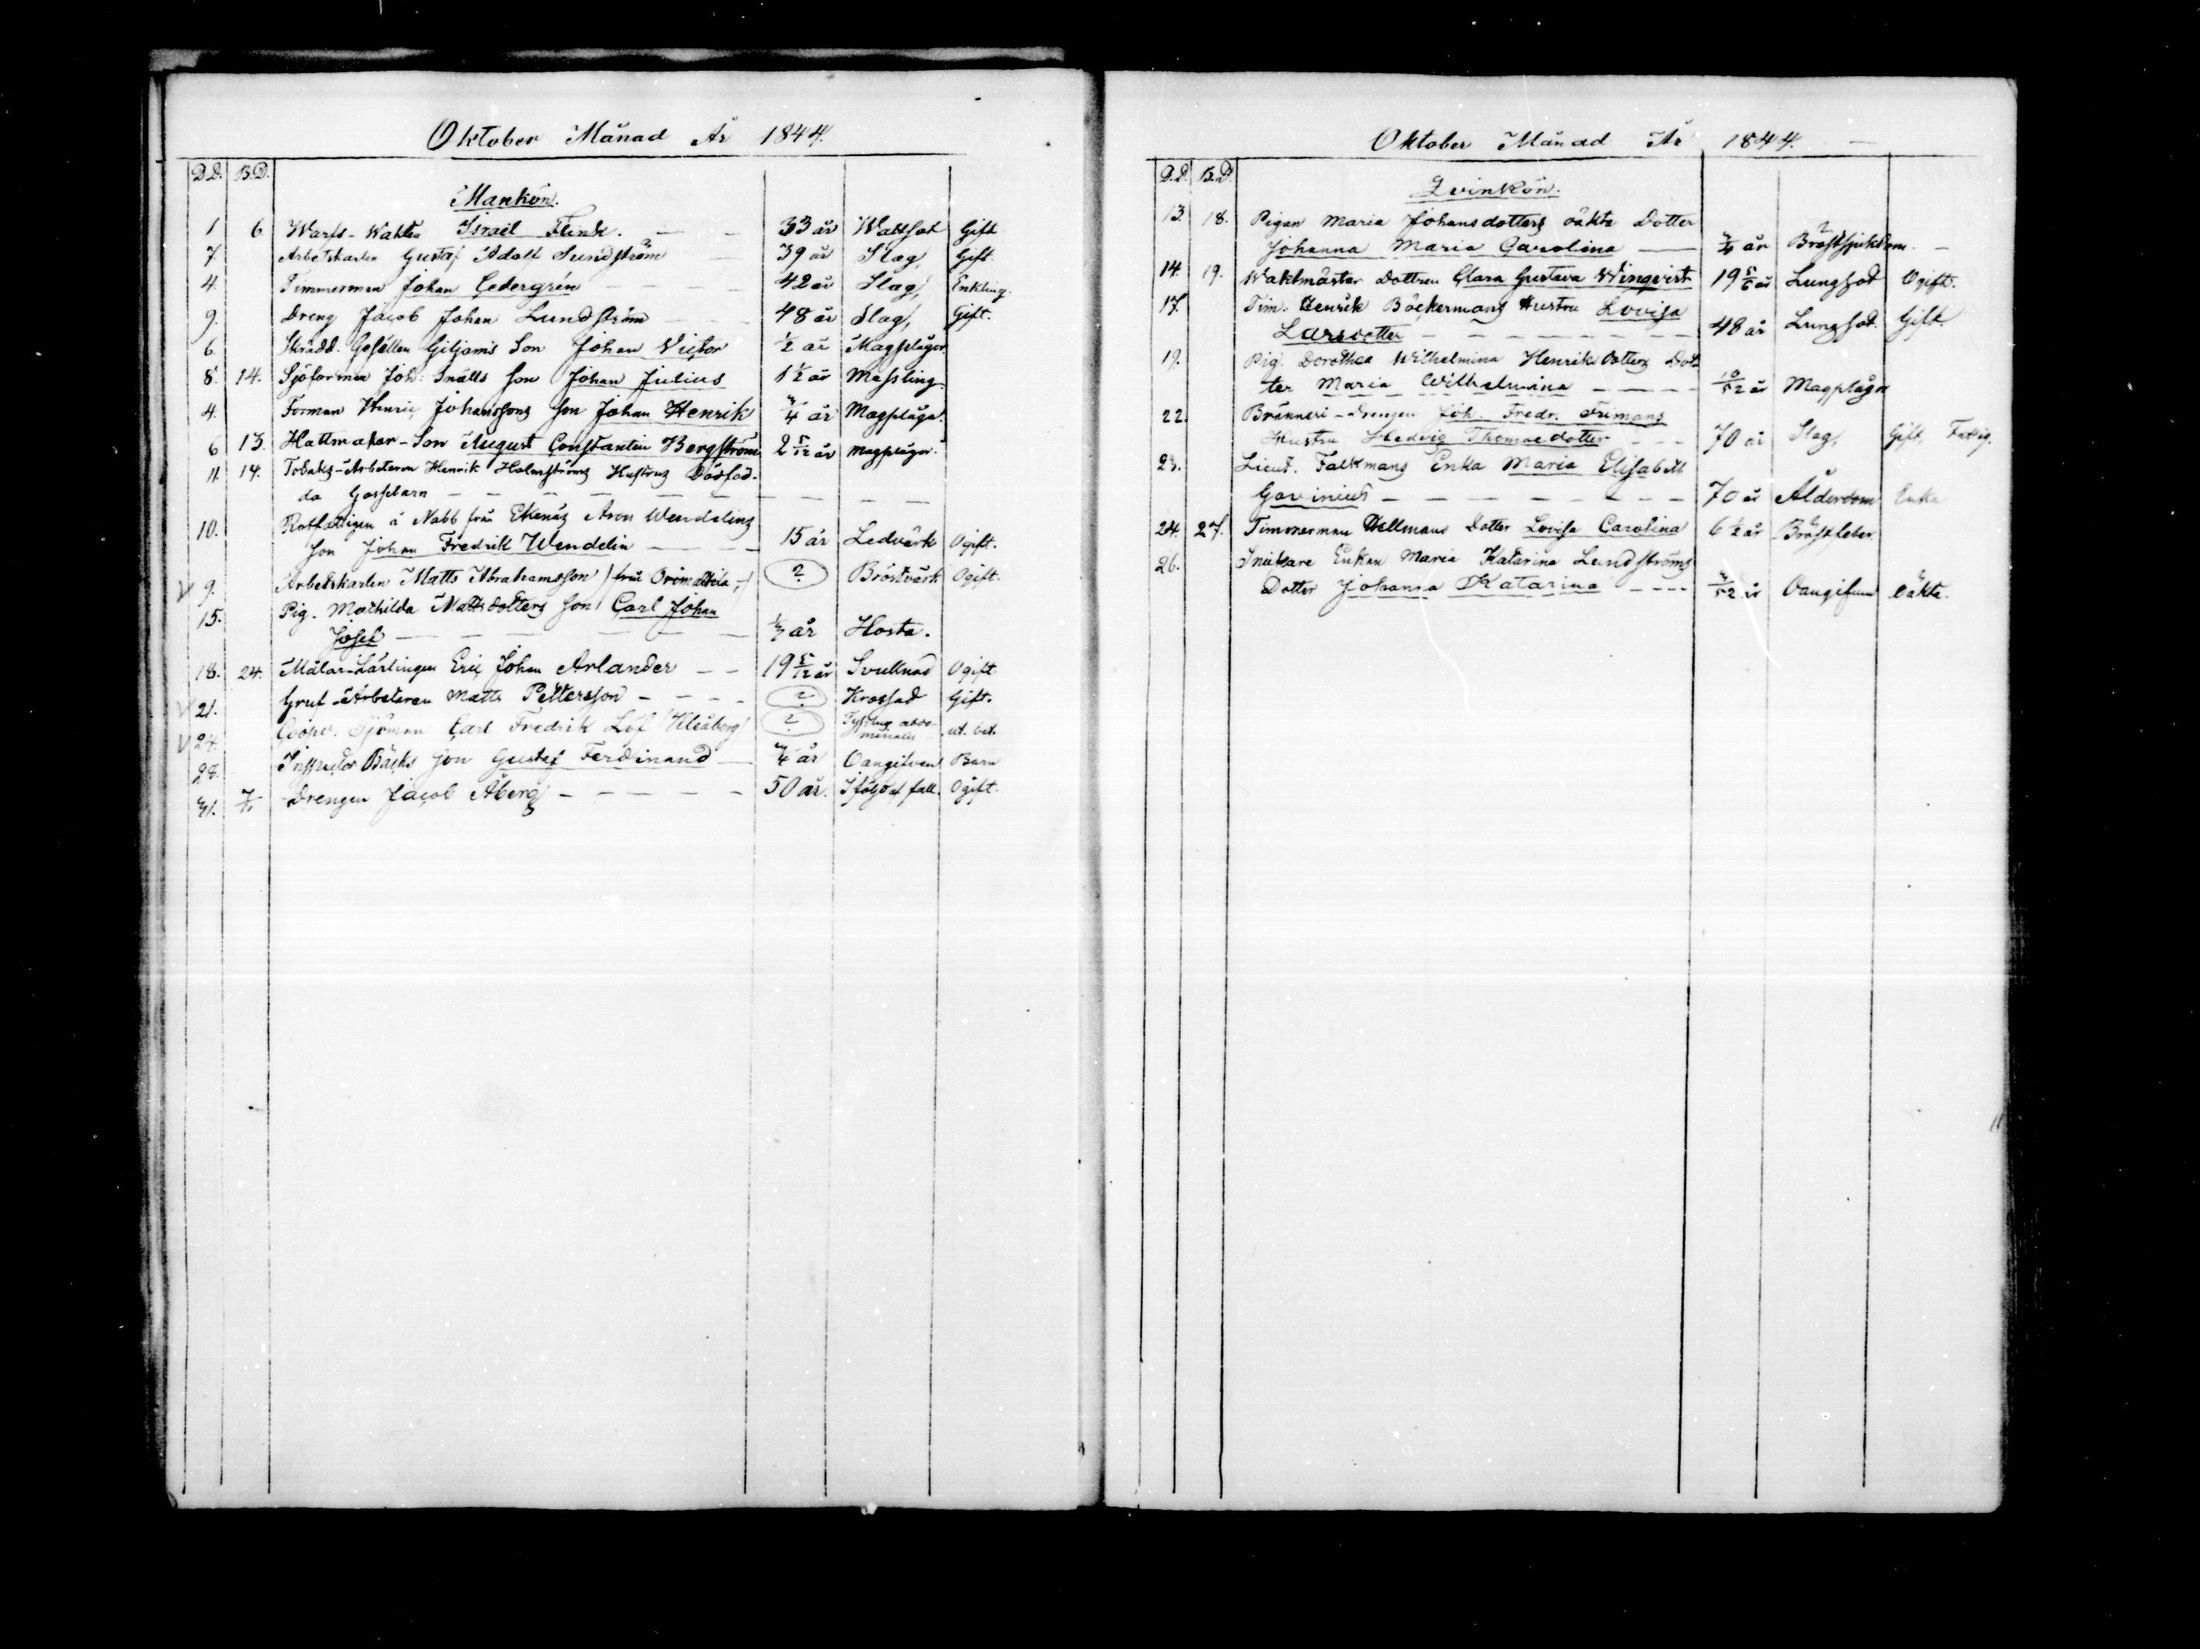 Oktober Månad År 1844.
D.D. B.D.
Mankön.
1 6 Warfs-Wakten Israel Flink. 33 år Wattsot Gift
7. Arbetskarlen Gustaf Adolf Sundström 39 år Slag, Gift.
4. Timmerman Johan Cedergrén 42 år Slag, Enkling.
9. Dreng Jacob Johan Lundström 48 år Slag, Gift.
6. Skrädd. Gesällen Giljams Son Johan Victor ½ år Magplågor
8. 14. Sjöforman Joh: Snälls Son Johan Julius 1½ år Messling.
4. Forman Henric Johanssons Son Johan Henrik ¾ år Magplågor.
6 13. Hattmakar-Son August Constantin Bergström 2 5/12 år Magplågor.
11. 14. Tobaks-Arbetaren Henrik Holmströms Hustrus Dödföd-
da Gossebarn
10. Rotfattigen å Nabb från Ekenäs Aron Wendelins
Son Johan Fredrik Wendelin 15 år Ledvärk Ogift.
V 9. Arbetskarlen Matts Abrahamsson från Orimattila ? Bröstvärk Ogift.
15. Pig. Mathilda Mattsdotters Son Carl Johan
Josef år Hosta.
18. 24. Målar-Lärlingen Eric Johan Arlander 19 5/12 år Svullnad Ogift.
V 21. Gruf-Arbetaren Matts Pettersson ? Krossad Gift.
V 24. Sjöman Carl Fredrik Löf Uleåborg ?
28. Inspector Bäcks Son Gustaf Ferdinand ¾ år Oangifven Barn
31. 7/11 Drengen Jacob Åberg 50 år. I följd af fall. Ogift.
Oktober Månad År 1844.
D.D. B.D.
Qvinkön.
13. 18. Pigan Maria Johansdotters oäkta Dotter
Johanna Maria Carolina år Bröstsjukdom.
14. 19. Waktmästar Dottren Clara Gustava Winqvist 19 5/6 år Lungsot Ogift.
17. Tim. Henrik Böckermans Hustru Lovisa
Larsdotter 48 år Lungsot. Gift.
19. Pig. Dorothea Wilhelmina Henriksdotters Dot-
ter Maria Wilhelmina 10/52 år Magplågor
22. Bränneri-Drengen Joh. Fredr. Frimans
Hustru Hedvig Thomasdotter 70 år Slag, Gift, Fattig.
23. Lieut. Falkmans Enka Maria Elisabeth
Gavinius 70 år Ålderdom Enka
24. 27. Timmerman Hellmans Dotter Lovisa Carolina 6½ år Bröstfeber
26. Snikare Enkan Maria Katarina Lundströms
Dotter Johanna Katarina år Oangifven Oäkta.